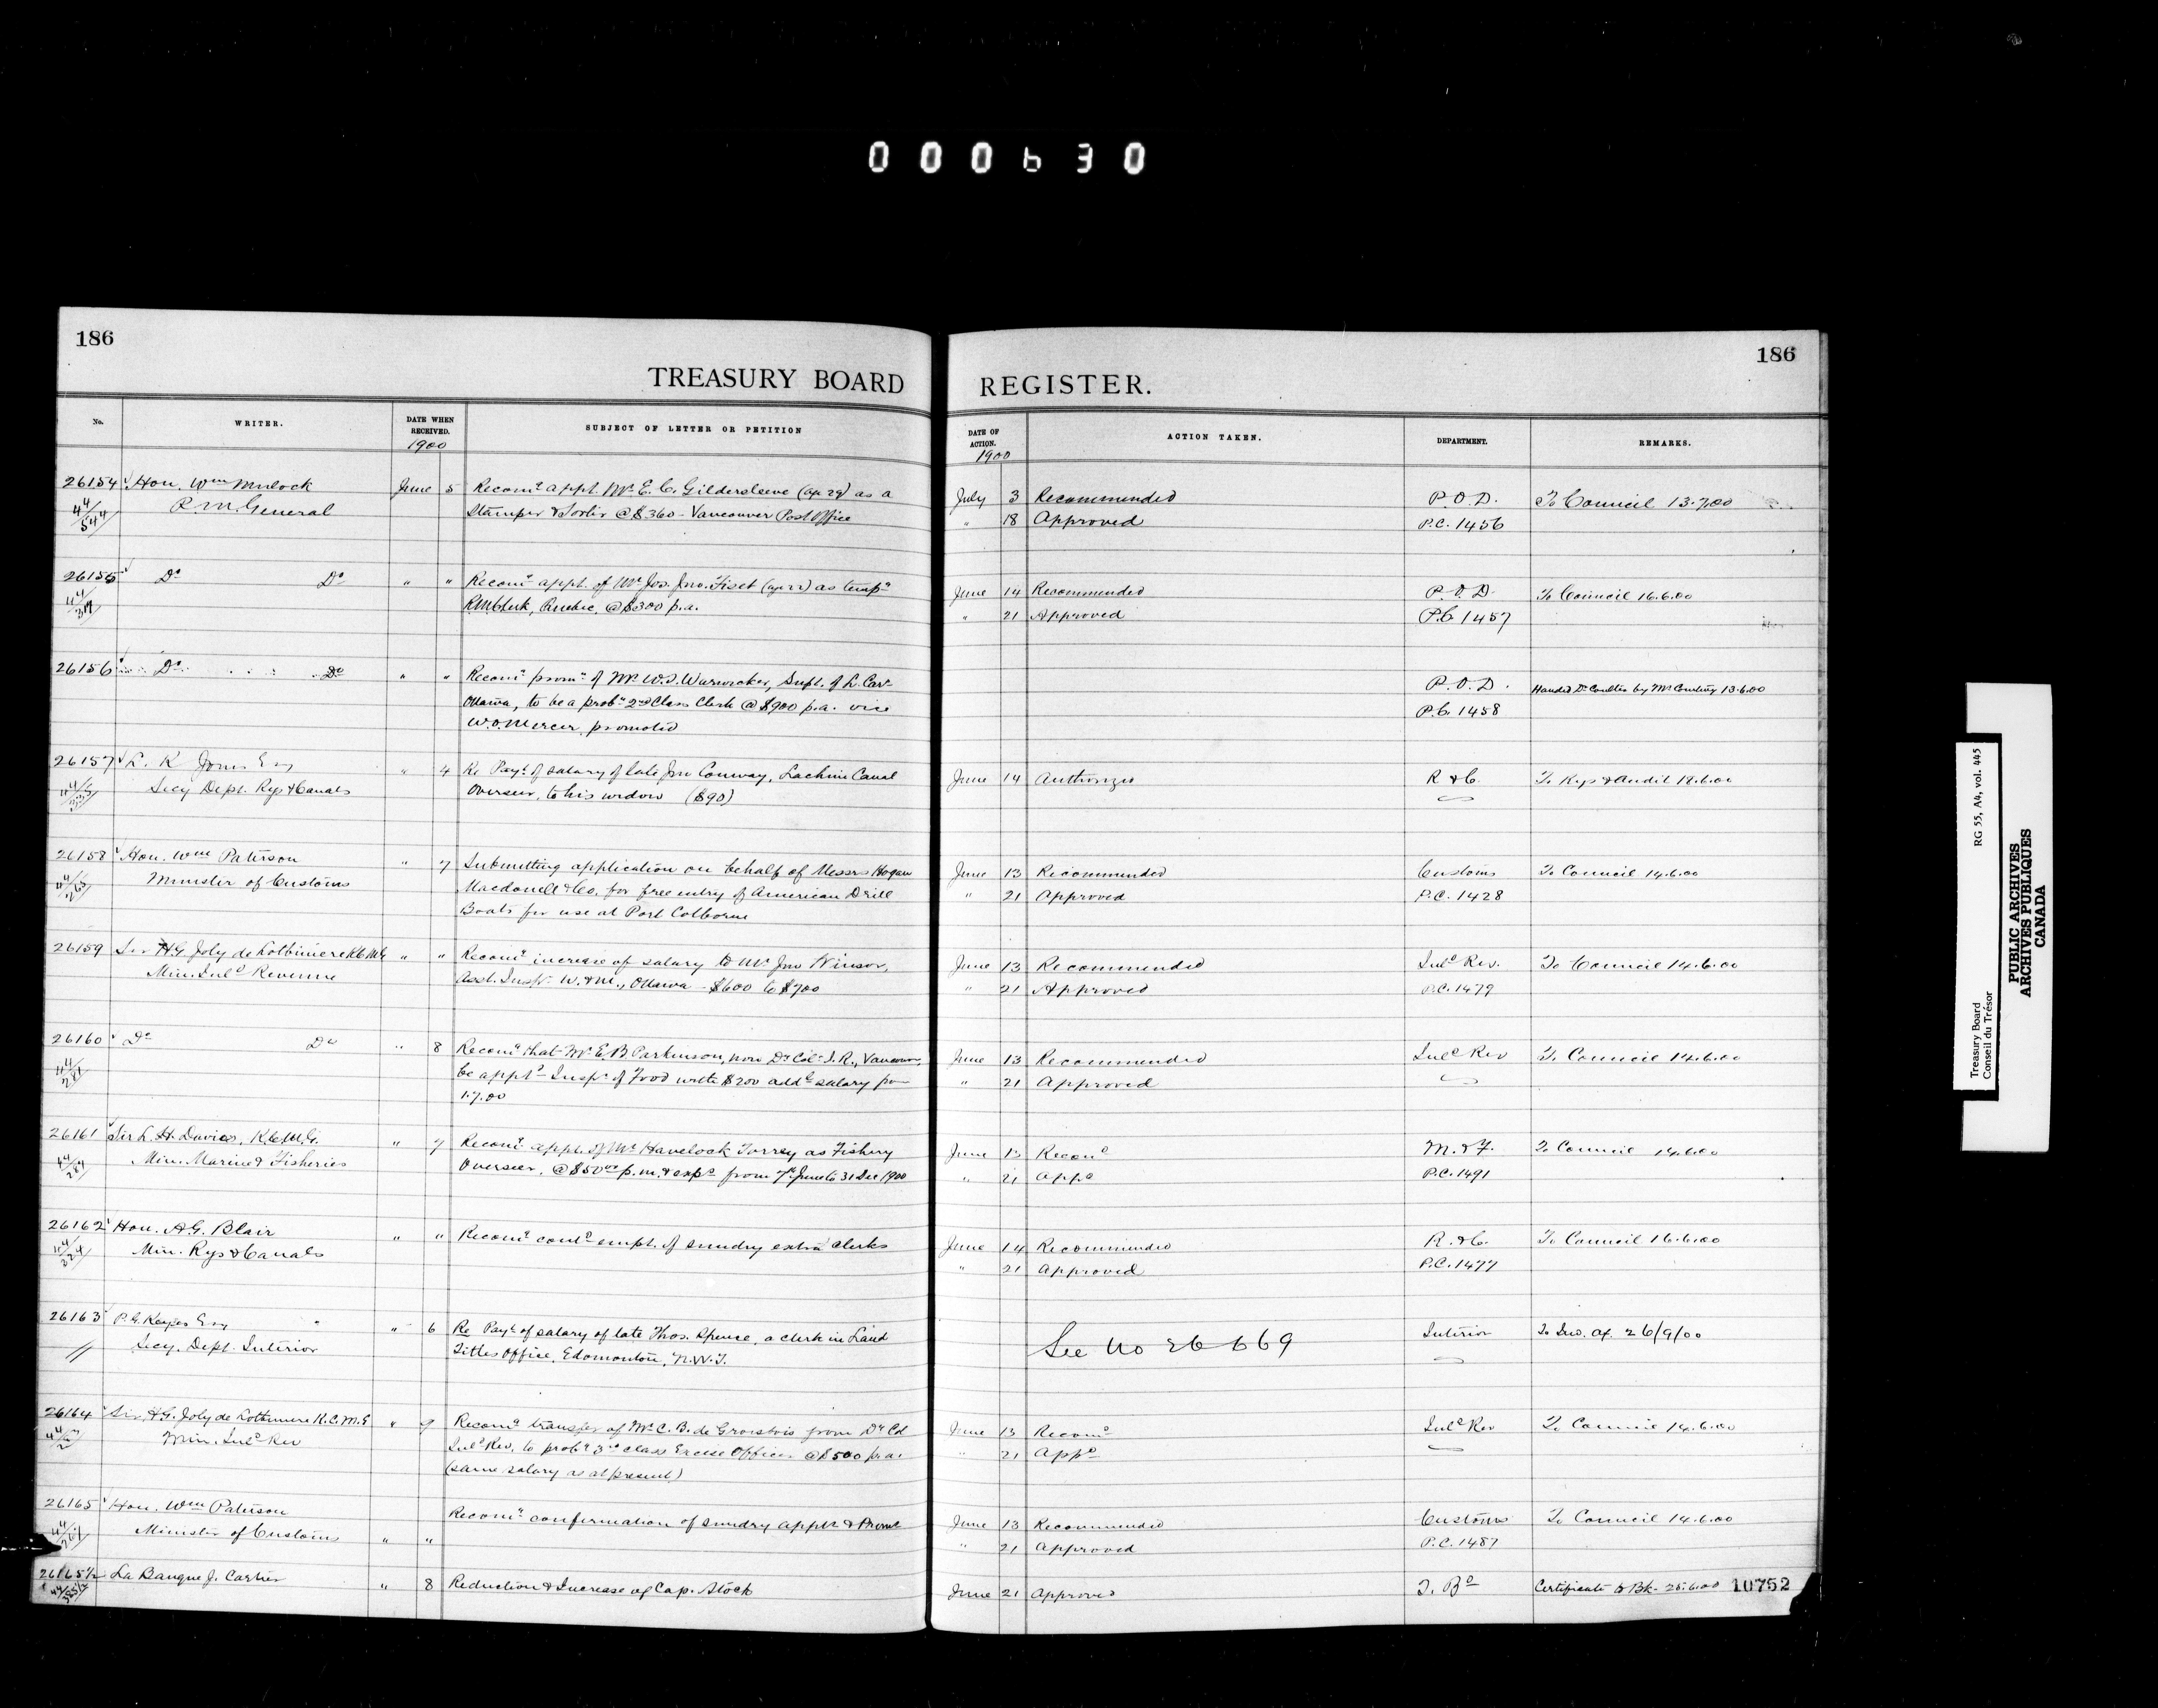 000630
186
TREASURY BOARD
No.
WRITER.
DATE WHEN RECEIVED.
1900
SUBJECT OF LETTER OR PETITION
26154 Hon. Wm Mulock June 5 Recomg appt. Mr. E. C. Gildersleeve (age 29) as a
44/544 P.M. General Stamper & Sorter @ $360 - Vancouver Post Office
26155 Do Do " " Recomg appt. of Mr Jos. Jno. Fiset (age 22) as tempy
RM Clerk, Quebec, @ $300 p.a.
26156 Do Do " " Recomg promn of Mr W.J. Warwicker, Supt. of L. Carr
Ottawa, to be a proby 2nd Class Clerk @ $900 p.a. vice
W.O. Mercer, promoted
26157 L. K Jones Esq " 4 Re Payt of salary of late Jno Conway, Lachine Canal
Secy Dept. Rys & Canals Overseer, to his widow ($90)
26158 Hon. Wm Paterson " 7 Submitting application on behalf of Messrs Hogan
Minister of Customs Macdonell & Co. for free entry of American Drill
Boats for use at Port Colborne
26159 Sir H.G. Joly de Lotbiniere KCMG " " Recomg increase of salary to Mr Jno Winsor,
Min. Inld Revenue Asst. Inspr. W. & M., Ottawa - $600 to $700
26160 Do Do " 8 Recomg that Mr E. B. Parkinson, now Dy Colr I.R., Vancouver
be apptd Inspr of Food with $200 addl salary from
1.7.00
26161 Sir L. H. Davies, K.C.M.G. " 7 Recomg appt. of Mr Havelock Torrey as Fishery
Min. Marine & Fisheries Overseer, @ $50 p.m. & exps from 7th June to 31 Dec 1900
26162 Hon. A.G. Blair " " Recomg contd empt. of sundry extra clerks
Min. Rys & Canals
26163 P.G. Keyes Esq " 6 Re Payt of salary of late Thos. Spence, a clerk in Land
Secy. Dept. Interior Titles Office, Edmonton, N.W.T.
26164 Sir H.G. Joly de Lotbiniere K.C.M.G " 9 Recomg transfer of Mr C. B. de Grosbois from Dy Col
Min. Inld Rev Inld Rev. to proby 3rd class Excise Officer @ $500 p.a.
(same salary as at present)
26165 Hon. Wm Paterson Recomg confirmation of sundry appts &
Minister of Customs " "
26165½ La Banque J. Cartier " 8 Reduction & Increase of Cap. Stock
186
REGISTER.
DATE OF ACTION.
1900
ACTION TAKEN.
DEPARTMENT.
REMARKS.
July 3 Recommended P.O.D. To Council 13.7.00
" 18 Approved P.C. 1456
June 14 Recommended P.O.D. To Council 16.6.00
" 21 Approved P.C. 1457
P.O.D. Handed Dr Coulter by Mr Courtney 13.6.00
P.C. 1458
June 14 Authorized R & C. To Rys & Audit 18.6.00
June 13 Recommended Customs To Council 14.6.00
" 21 Approved P.C. 1428
June 13 Recommended Inld Rev. To Council 14.6.00
" 21 Approved P.C. 1479
June 13 Recommended Inld Rev To Council 14.6.00
" 21 Approved
June 13 Recomd M. & F. To Council 14.6.00
" 21 Appd P.C. 1491
June 14 Recommended R. & C. To Council 16.6.00
" 21 Approved P.C. 1477
See No 26669 Interior 26/9/00
June 13 Recomd Inld Rev To Council 14.6.00
" 21 Appd
June 13 Recommended Customs To Council 14.6.00
" 21 Approved P.C. 1487
June 21 Approved T. Bd Certificate to Bk. 25.6.00
10752
Treasury Board RG 55, A4, vol. 445
Conseil du Trésor
PUBLIC ARCHIVES
ARCHIVES PUBLIQUES
CANADA